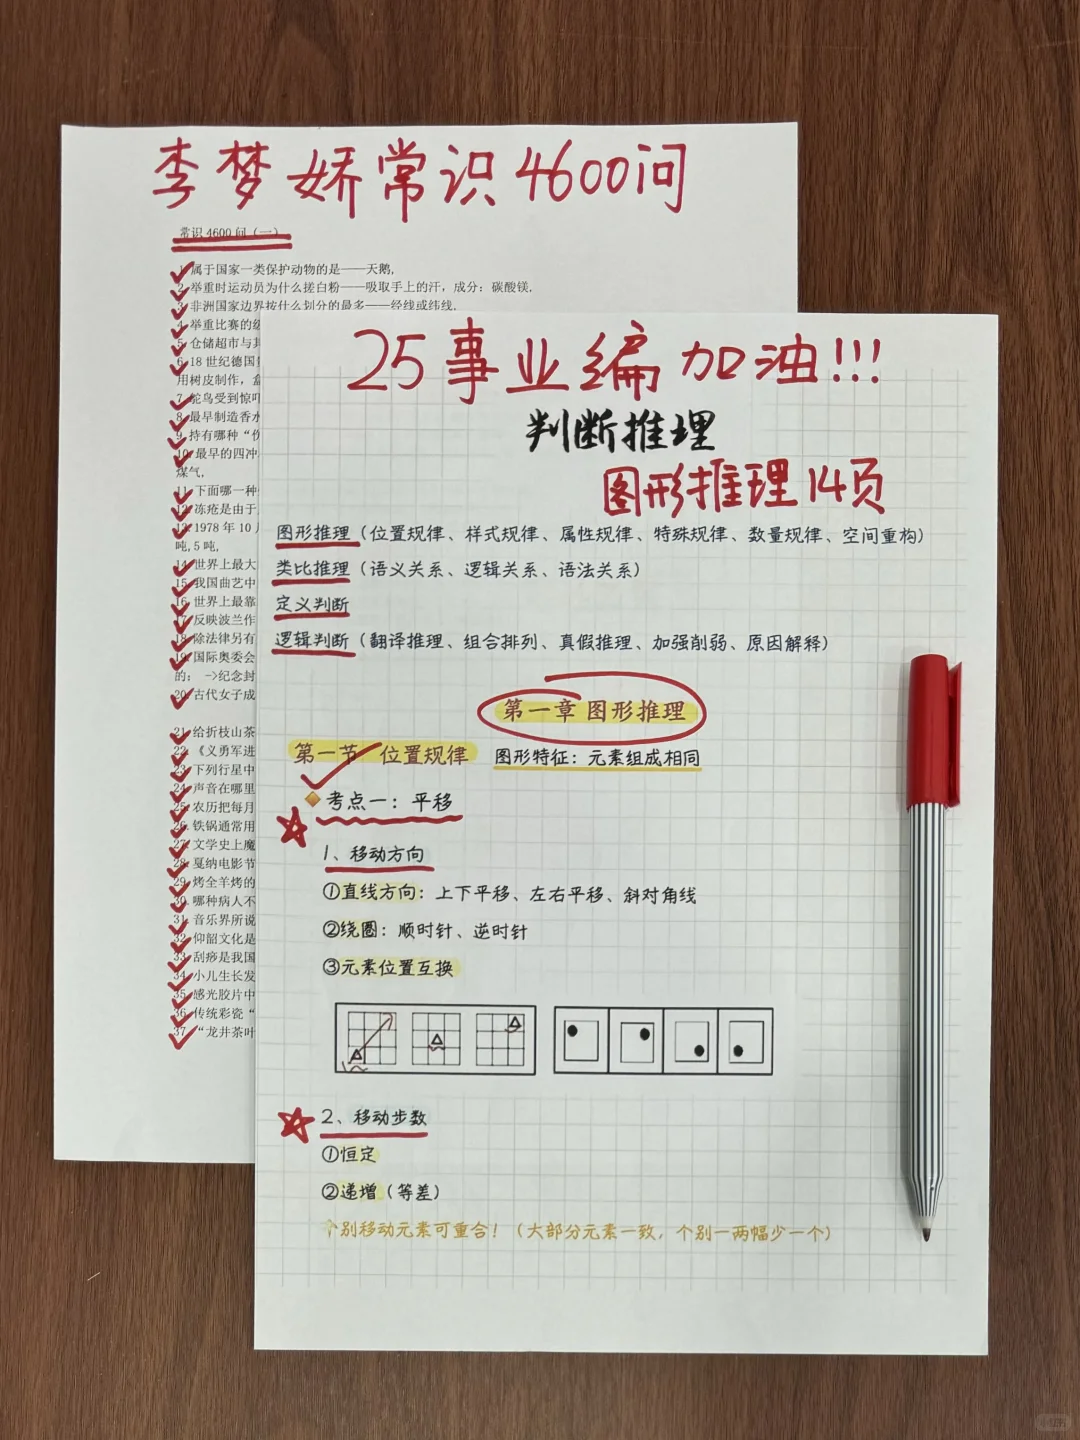 李梦娇常识4600问
常识 4600 问（一）
1. 属于国家一类保护动物的是——天鹅,
2. 举重时运动员为什么搓白粉——吸取手上的汗，成分：碳酸镁,
3. 非洲国家边界按什么划分的最多——经线或纬线,
4. 举重比赛的级
5. 仓储超市与其
6. 18 世纪德国
用树皮制作，盒
7. 鸵鸟受到惊吓
8. 最早制造香水
9. 持有哪种“伤
10. 最早的四冲
煤气,
11. 下面哪一种
12. 冻疮是由于
13. 1978 年 10 月
吨, 5 吨,
14. 世界上最大
15. 我国曲艺中
16. 世界上最靠
17. 反映波兰作
18. 除法律另有
19. 国际奥委会
的： ->纪念封
20. 古代女子成
21. 给折枝山茶
22. 《义勇军进
23. 下列行星中
24. 声音在哪里
25. 农历把每月
26. 铁锅通常用
27. 文学史上魔
28. 戛纳电影节
29. 烤全羊烤的
30. 哪种病人不
31. 音乐界所说
32. 仰韶文化是
33. 刮痧是我国
34. 小儿生长发
35. 感光胶片中
36. 传统彩瓷“
37. “龙井茶叶
25事业编加油!!!
判断推理
图形推理14页
图形推理（位置规律、样式规律、属性规律、特殊规律、数量规律、空间重构）
类比推理（语义关系、逻辑关系、语法关系）
定义判断
逻辑判断（翻译推理、组合排列、真假推理、加强削弱、原因解释）
第一章 图形推理
第一节 位置规律 图形特征：元素组成相同
考点一：平移
1、移动方向
①直线方向：上下平移、左右平移、斜对角线
②绕圈：顺时针、逆时针
③元素位置互换
2、移动步数
①恒定
②递增（等差）
个别移动元素可重合！（大部分元素一致，个别一两幅少一个）